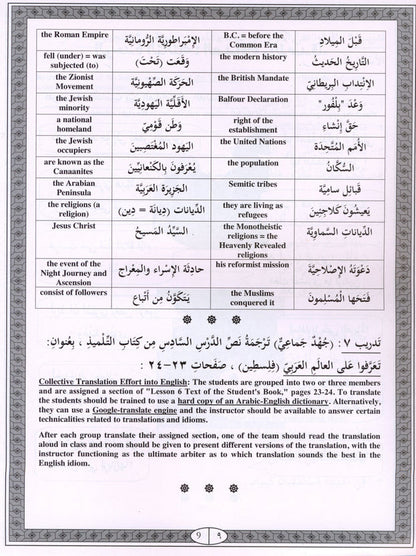 the Roman Empire الإمْبراطوريَّة الرُّومانِيَّة B.C. = before the قَبْلَ الميلادِ
Common Era
fell (under) = was وَقَعَت (تَحْتَ) the modern history التَّاريخُ الحَديثُ
subjected (to)
the Zionist الحَرَكَة الصَّهْيونِيَّة the British Mandate الإنْتِداب البريطانِيّ
Movement
the Jewish الأقَلِّيَّة اليَهودِيَّة Balfour Declaration وَعْدُ "بِلْفُور"
minority
a national وَطَن قَوْمِيّ right of the حَقّ إنْشاءِ
homeland establishment
the Jewish اليَهود المُغْتَصِبينَ the United Nations الأُمَم المُتَّحِدَة
occupiers
are known as the يُعْرَفونَ بِالكَنْعانِيِّينَ the population السُّكَّانُ
Canaanites
the Arabian الجَزيرَة العَرَبِيَّة Semitic tribes قَبائِل سامِيَّة
Peninsula
the religions (a الدِّيانات (دِيانَة = دين) they are living as يَعيشُونَ كَلاجِئينَ
religion) refugees
Jesus Christ السَّيِّدُ المَسيحُ the Monotheistic الدِّيانات السَّماوِيَّة
religions = the
Heavenly Revealed
religions
the event of the حادِثَة الإسْراء والمِعْراج his reformist mission دَعْوَتهُ الإصْلاحِيَّة
Night Journey and
Ascension
consist of followers يَتَكَوَّنُ مِن أتْباع the Muslims فَتَحَها المُسْلِمونَ
conquered it
تَدريب ٧ : (جُهْدٌ جَماعِيٌّ) تَرْجَمَةُ نَصِّ الدَّرْسِ السَّادِسِ مِن كِتابِ التِّلْميذِ، بِعُنوانِ:
تَعَرَّفوا على العالَمِ العَرَبِيِّ (فِلِسْطين)، صَفَحات ٢٣-٢٤ :
Collective Translation Effort into English: The students are grouped into two or three members
and are assigned a section of "Lesson 6 Text of the Student's Book," pages 23-24. To translate
the students should be trained to use a hard copy of an Arabic-English dictionary. Alternatively,
they can use a Google-translate engine and the instructor should be available to answer certain
technicalities related to translations and idioms.
After each group translate their assigned section, one of the team should read the translation
aloud in class and room should be given to present different versions of the translation, with the
instructor functioning as the ultimate arbiter as to which translation sounds the best in the
English idiom.
9 ٩